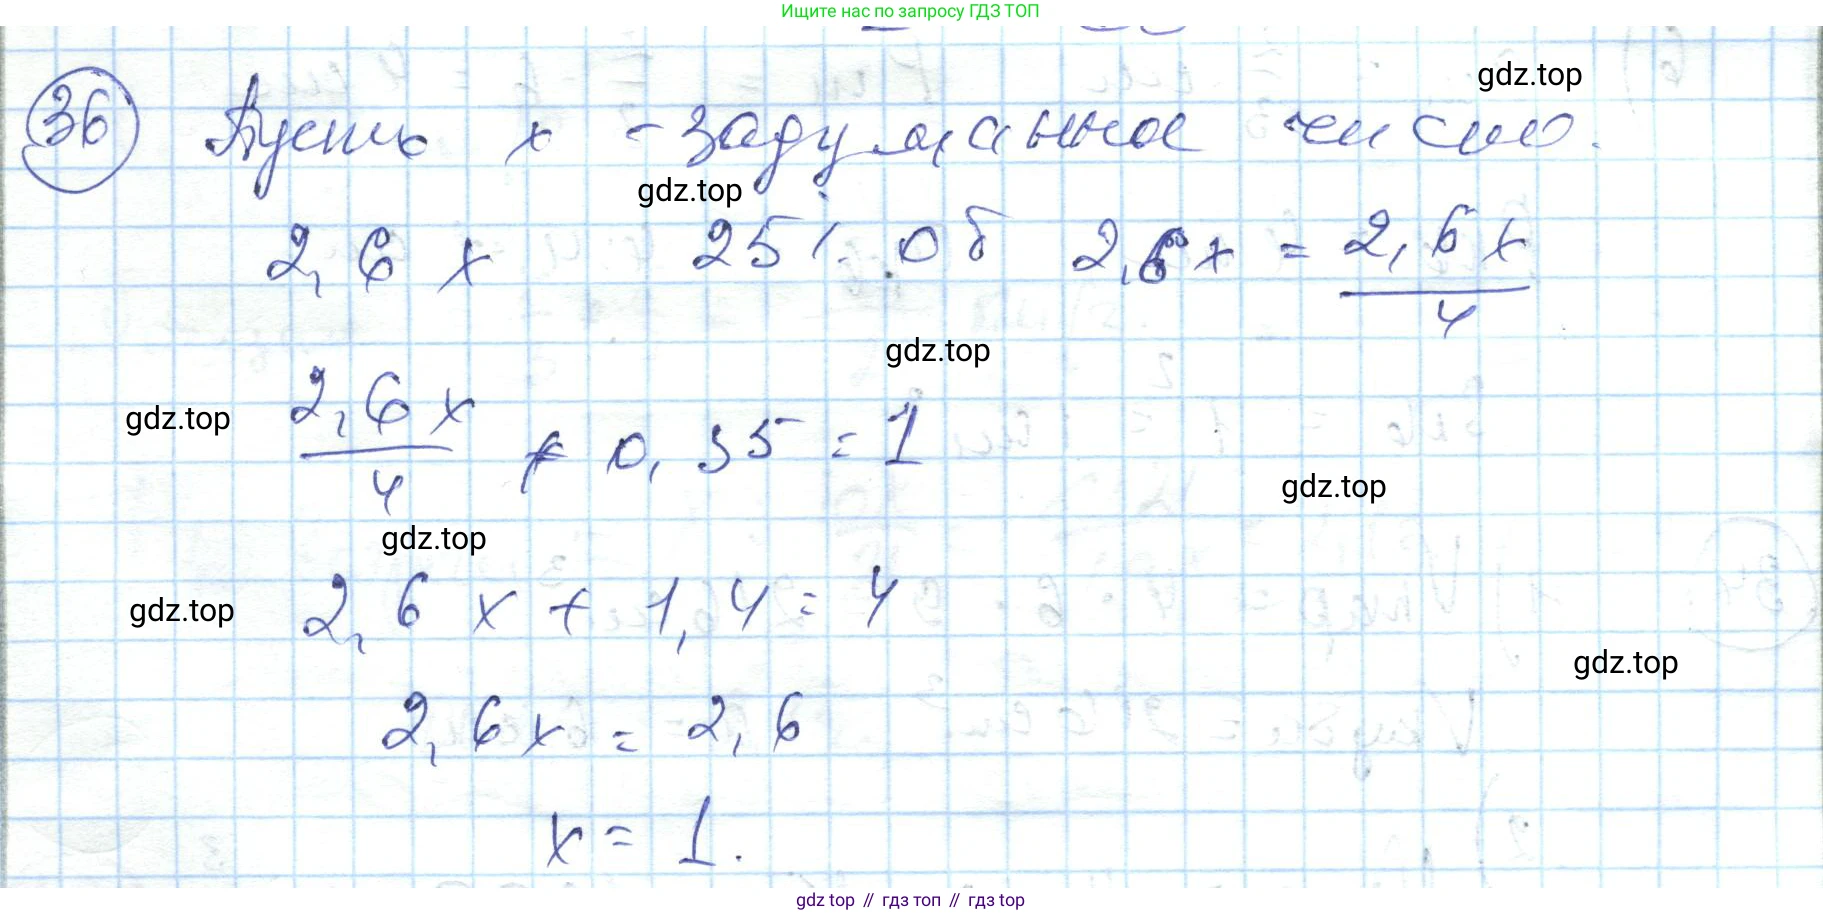 Ищите нас по запросу ГДЗ ТОП
gdz.top
36 Пусть x - задуманное число.
gdz.top
2,6 x 25% об 2,6x = 2,6x / 4
gdz.top
gdz.top
2,6 x / 4 + 0,35 = 1
gdz.top
gdz.top
gdz.top
2,6 x + 1,4 = 4
gdz.top
2,6x = 2,6
x = 1.
gdz top // гдз топ // гдз top